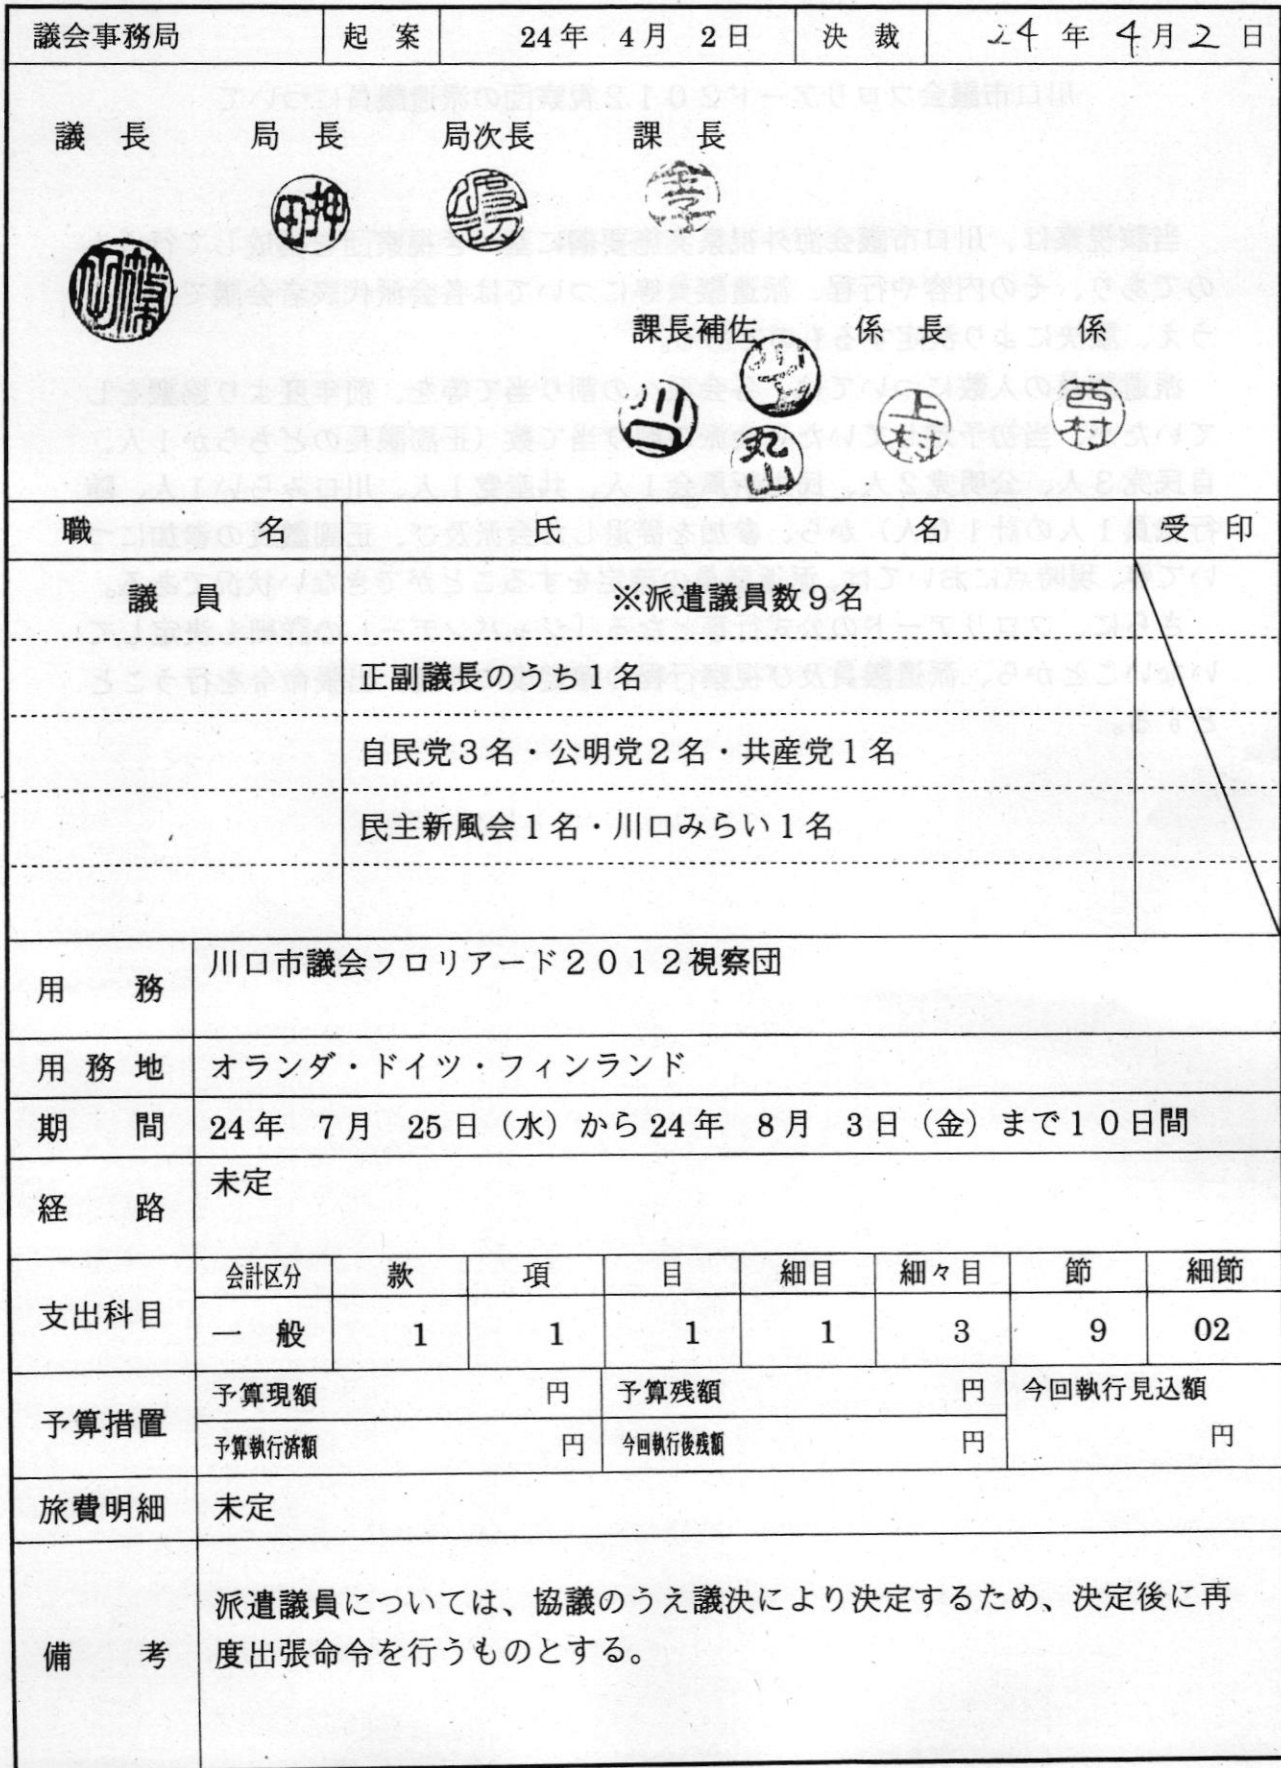 議会事務局 起案 24年 4月 2日 決裁 24年 4月 2日
議長 局長 局次長 課長
押田
課長補佐 係長 係
丸山 上村 西村
職名 氏名 受印
議員 ※派遣議員数9名
正副議長のうち1名
自民党3名・公明党2名・共産党1名
民主新風会1名・川口みらい1名
用務 川口市議会フロリアード2012視察団
用務地 オランダ・ドイツ・フィンランド
期間 24年 7月 25日(水)から24年 8月 3日(金)まで10日間
経路 未定
支出科目 会計区分 款 項 目 細目 細々目 節 細節
一般 1 1 1 1 3 9 02
予算措置 予算現額 円 予算残額 円 今回執行見込額
予算執行済額 円 今回執行後残額 円 円
旅費明細 未定
備考 派遣議員については、協議のうえ議決により決定するため、決定後に再
度出張命令を行うものとする。